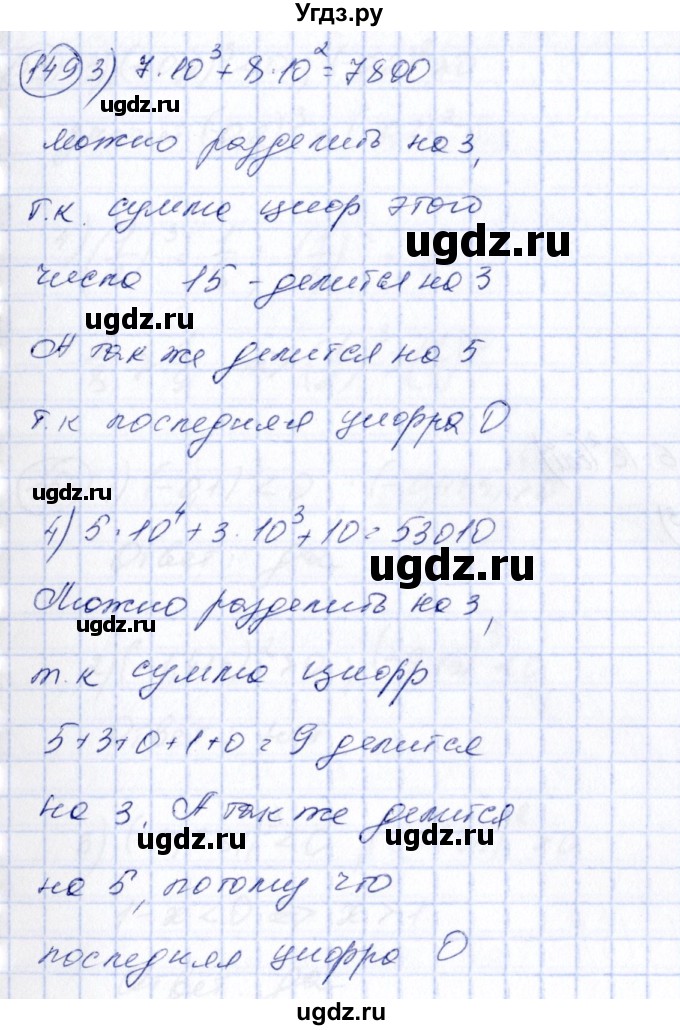 Угдз.ру
149 3) 7·10³+8·10²=7800
ugdz.ru
можно разделить на 3,
ugdz.ru
т.к. сумма цифр этого
ugdz.ru
числа 15 - делится на 3
ugdz.ru
А так же делится на 5
ugdz.ru
т.к последняя цифра 0
ugdz.ru
4) 5·10⁴+3·10³+10=53010
ugdz.ru
Можно разделить на 3,
ugdz.ru
т.к сумма цифр
ugdz.ru
5+3+0+1+0=9 делится
на 3. А так же делится
ugdz.ru ugdz.ru
на 5, потому что
ugdz.ru
последняя цифра 0
ugdz.ru